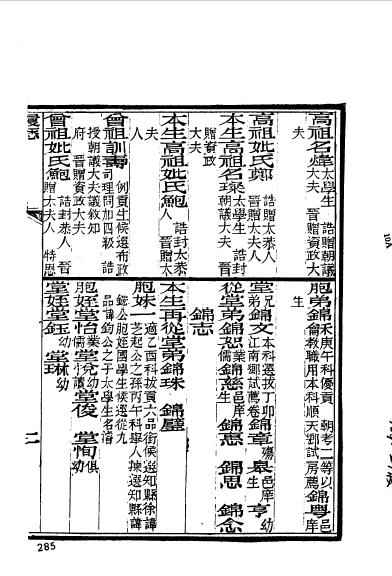 高祖名煒 太學生 誥贈朝議大夫 晉贈資政大夫
高祖妣氏鄭 誥贈太恭人 晉贈太夫人
本生高祖名琛 太學生 誥封朝議大夫 晉贈資政大夫
本生高祖妣氏鮑 誥封太恭人 晉贈太夫人
曾祖訓 例貢生候選布政司理問加四級 誥授朝議大夫議敘知府 晉贈資政大夫
曾祖妣氏鮑 誥封恭人 晉贈太夫人 特恩
胞弟錦 庚午科優貢 朝考二等以教職用本科順天鄉試房薦 錦粵 邑庠生
堂兄錦文 本科選拔丁卯 弟 江南鄉試薦卷 錦章 殤 皋 邑庠生 亨 幼
從堂弟錦 業儒 錦慈 邑庠生 錦 錦思 錦念 錦志
本生再從堂弟錦珠 錦璧
胞妹一 適乙酉科拔貢六品銜候選知縣徐諱芝起公之孫丙午科舉人揀選知縣諱公胞姪國學生候選從九品諱鈞公之子太學生名濤
胞姪堂怡 業儒 堂 幼讀 堂俊 堂恂 俱幼
堂姪堂鈺 幼 堂琳 幼
285